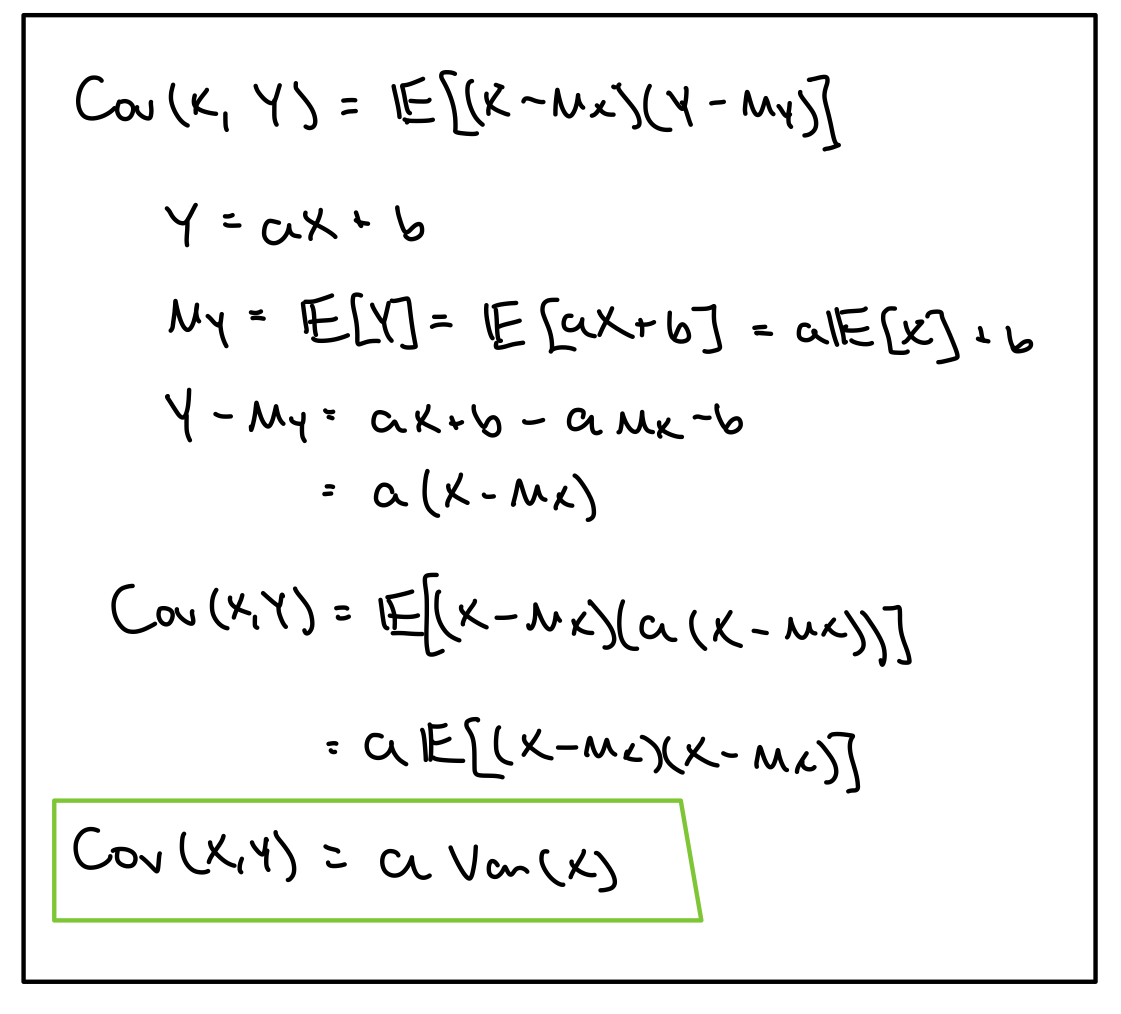 Cov(X, Y) = 𝔼[(X - μx)(Y - μy)]
Y = aX + b
μy = 𝔼[Y] = 𝔼[aX + b] = a𝔼[X] + b
Y - μy = aX + b - aμx - b
= a(X - μx)
Cov(X,Y) = 𝔼[(X - μx)(a(X - μx))]
= a𝔼[(X - μx)(X - μx)]
Cov(X,Y) = a Var(X)